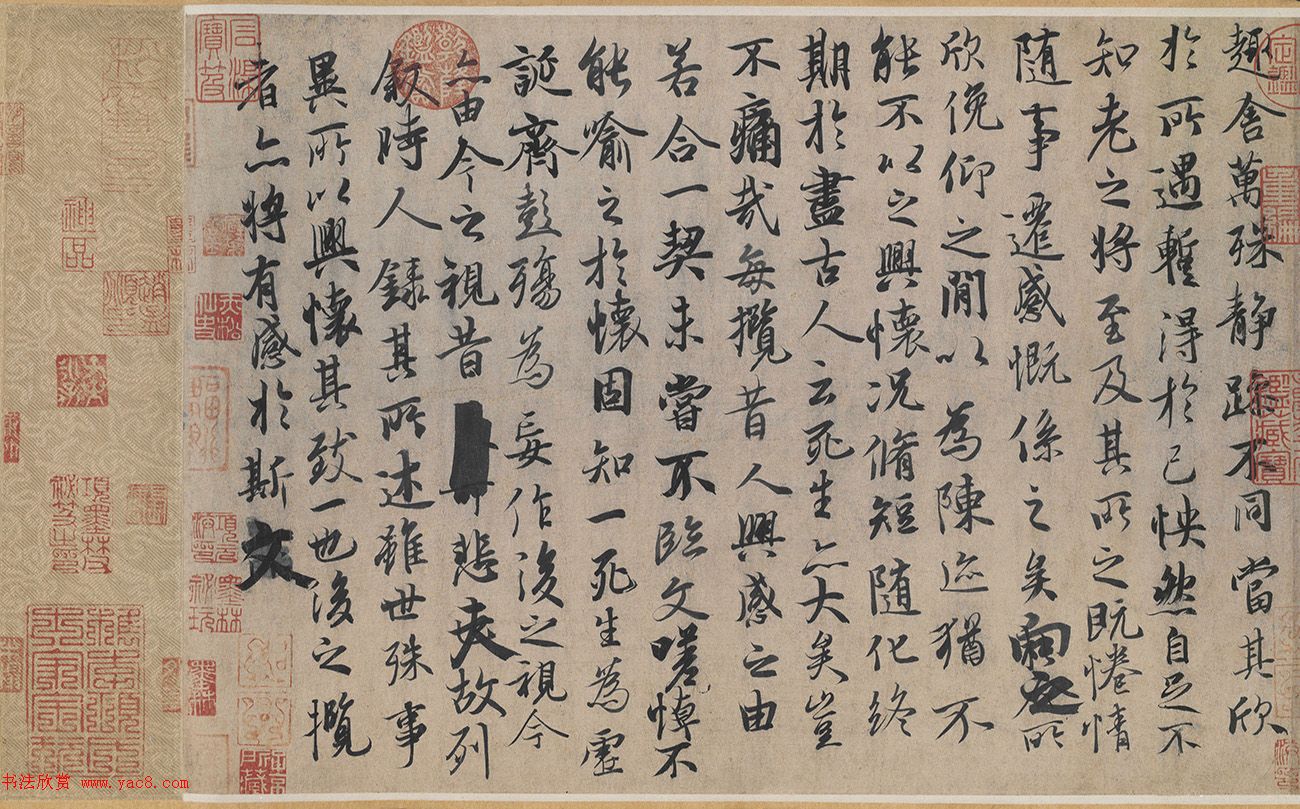 趣舍萬殊静躁不同當其欣
於所遇蹔得於己怏然自足不
知老之將至及其所之既惓情
随事遷感慨係之矣向之所
欣俛仰之閒以為陳迹猶不
能不以之興懷况脩短随化終
期於盡古人云死生亦大矣豈
不痛哉每攬昔人興感之由
若合一契未嘗不臨文嗟悼不
能喻之於懷固知一死生為虚
誕齊彭殤為妄作後之視今
亦由今之視昔悲夫故列
叙時人録其所述雖世殊事
異所以興懷其致一也後之攬
者亦將有感於斯文
神品
项墨林
书法欣赏 www.yac8.com